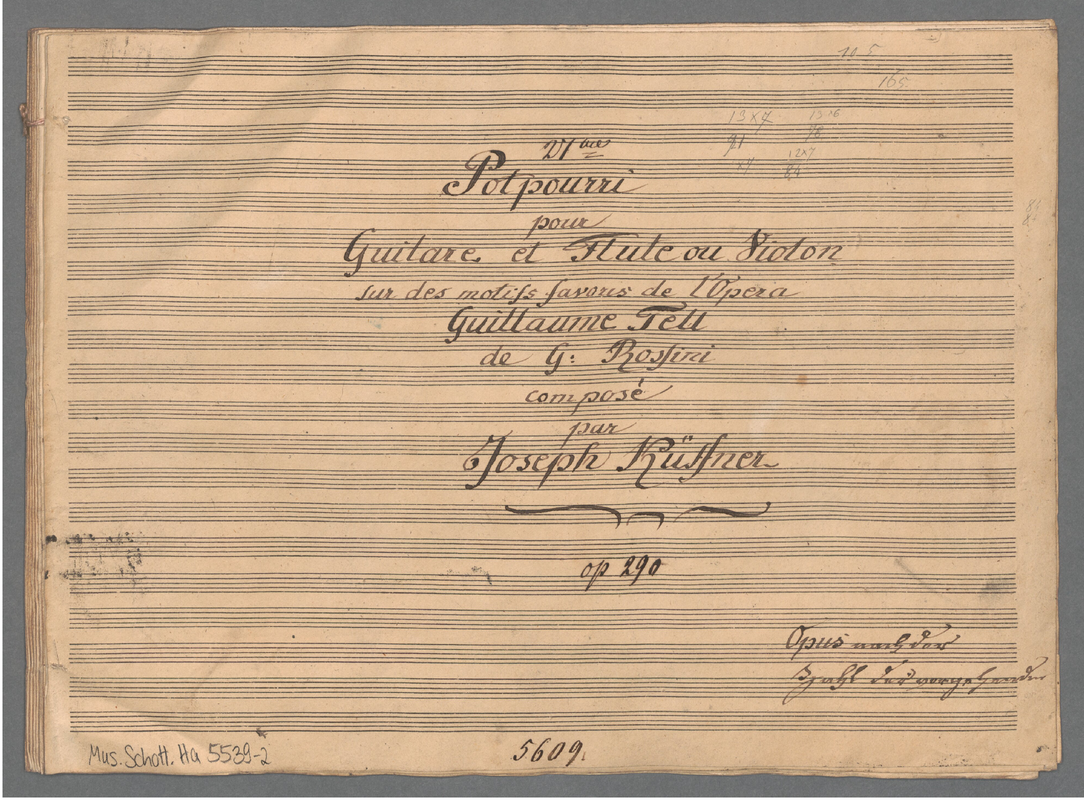 10 5
165
13 x 7
13 16
78
91
12x7
84
x7
27 ème
Potpourri
pour
Guitare et Flute ou Violon
sur des motifs favoris de l'Opera
Guillaume Tell
de G: Rossini
composé
par
Joseph Küffner
op 290
Opus nach der
Zahl der vorgehenden
Mus. Schott. Ha 5539-2
5609.